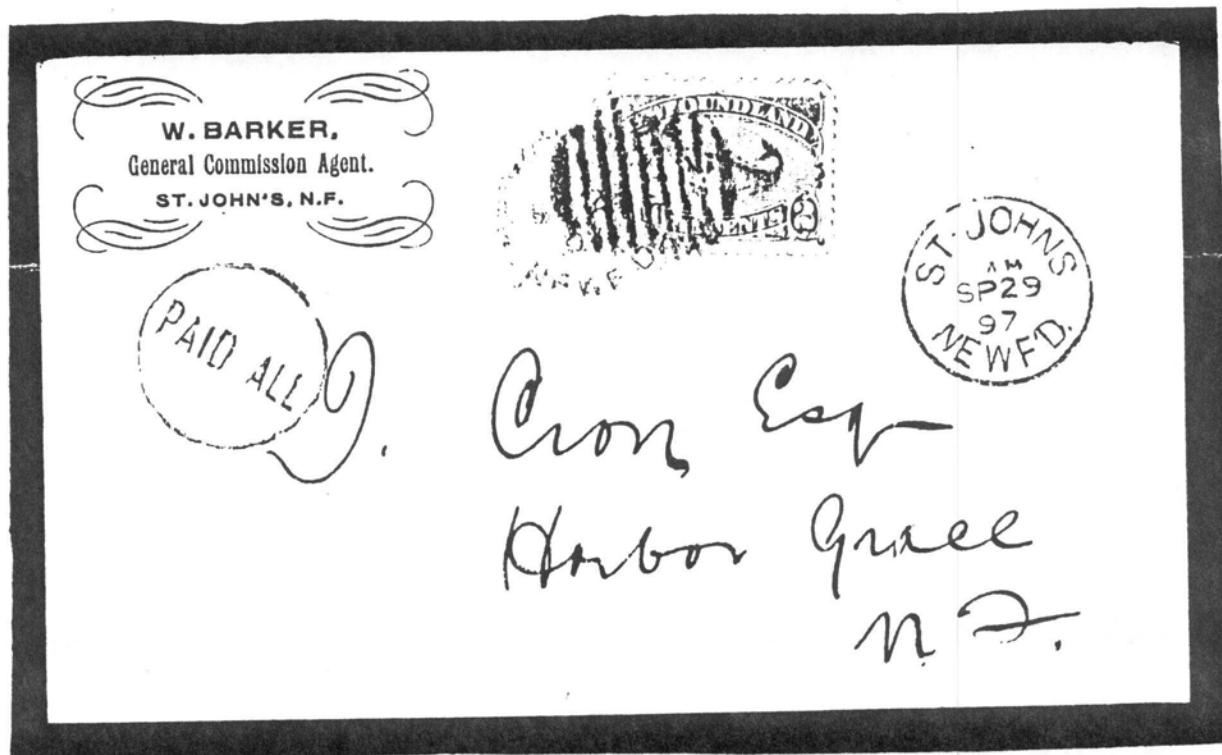 W. BARKER,
General Commission Agent.
ST. JOHN'S, N.F.
NEWFOUNDLAND
CENTS
ST. JOHNS
AM
SP 29
97
NEWF'D.
PAID ALL
J. Cron Esq
Harbor Grace
N. F.